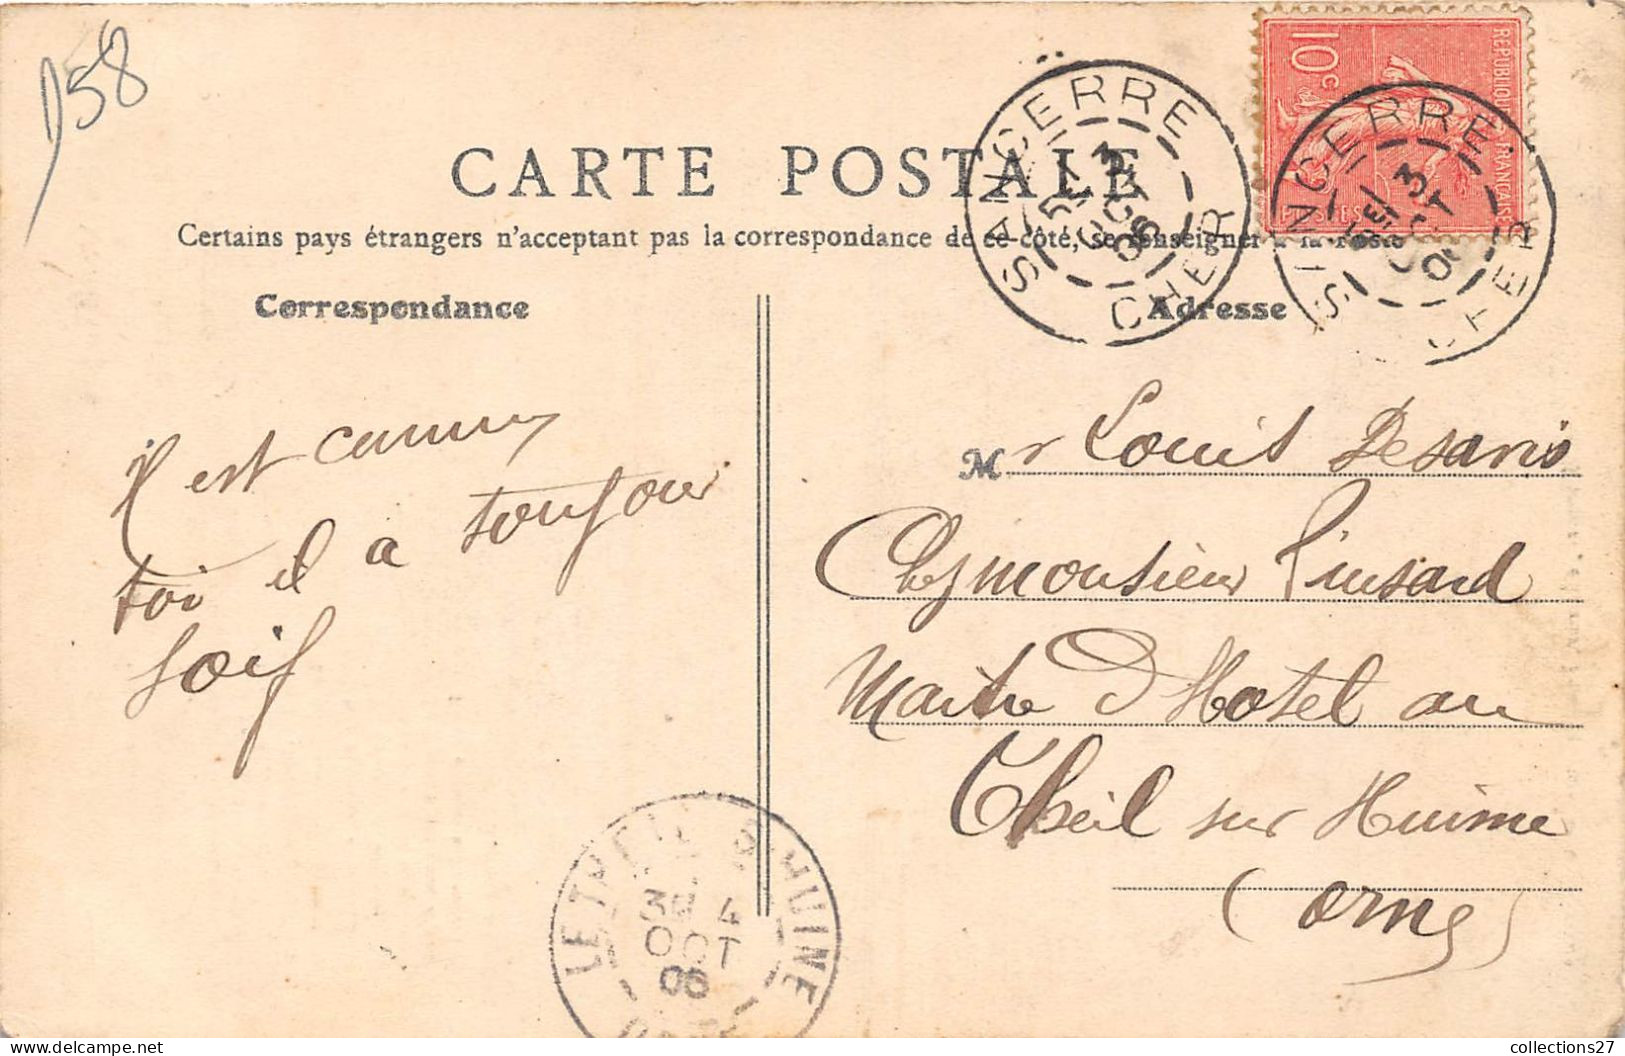 D58
RÉPUBLIQUE FRANÇAISE
10c
POSTES
SANCERRE
3
OCT
06
CHER
SANCERRE
3
OCT
CHER
CARTE POSTALE
Certains pays étrangers n'acceptant pas la correspondance de ce côté, se renseigner à la Poste
Correspondance
Adresse
il est comme
toi il a toujour
soif
Mr Louis Desanis
Chez monsieur Pinsard
Maitre d'Hotel au
Theil sur Huisne
(orne)
LE THEIL S HUINE
3E 4
OCT
06
collections27